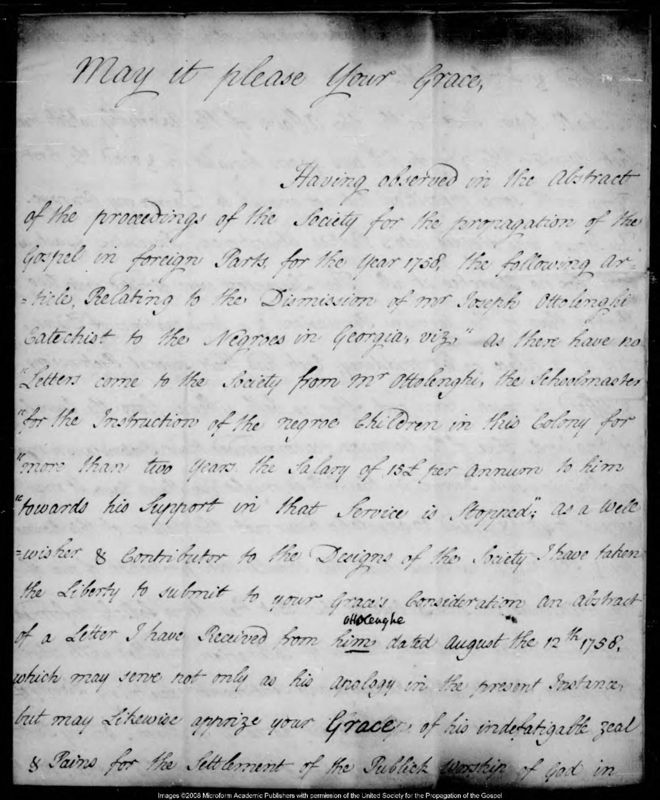 May it please Your Grace,
Having observed in the Abstract
of the proceedings of the Society for the propagation of the
Gospel in foreign Parts, for the Year 1758, the following Ar-
=ticle, Relating to the Dismission of mr Joseph Ottolenghi
Catechist to the Negroes in Georgia, viz, " as there have no
"Letters come to the Society from mr Ottolenghi, the Schoolmaster
"for the Instruction of the negroe Children in this Colony for
"more than two years the Salary of 15£ per annum to him
"towards his Support in that Service is Stopped"; as a well
=wisher & Contributor to the Designs of the Society I have taken
the Liberty to submit to your Grace's Consideration an abstract
ottolenghe
of a Letter I have Received from him dated August the 12th 1758,
which may serve not only as his apology in the present Instance,
but may Likewise apprize your Grace of his indefatigable zeal
& Pains for the Settlement of the Publick worship of God in
Images ©2008 Microform Academic Publishers with permission of the United Society for the Propagation of the Gospel